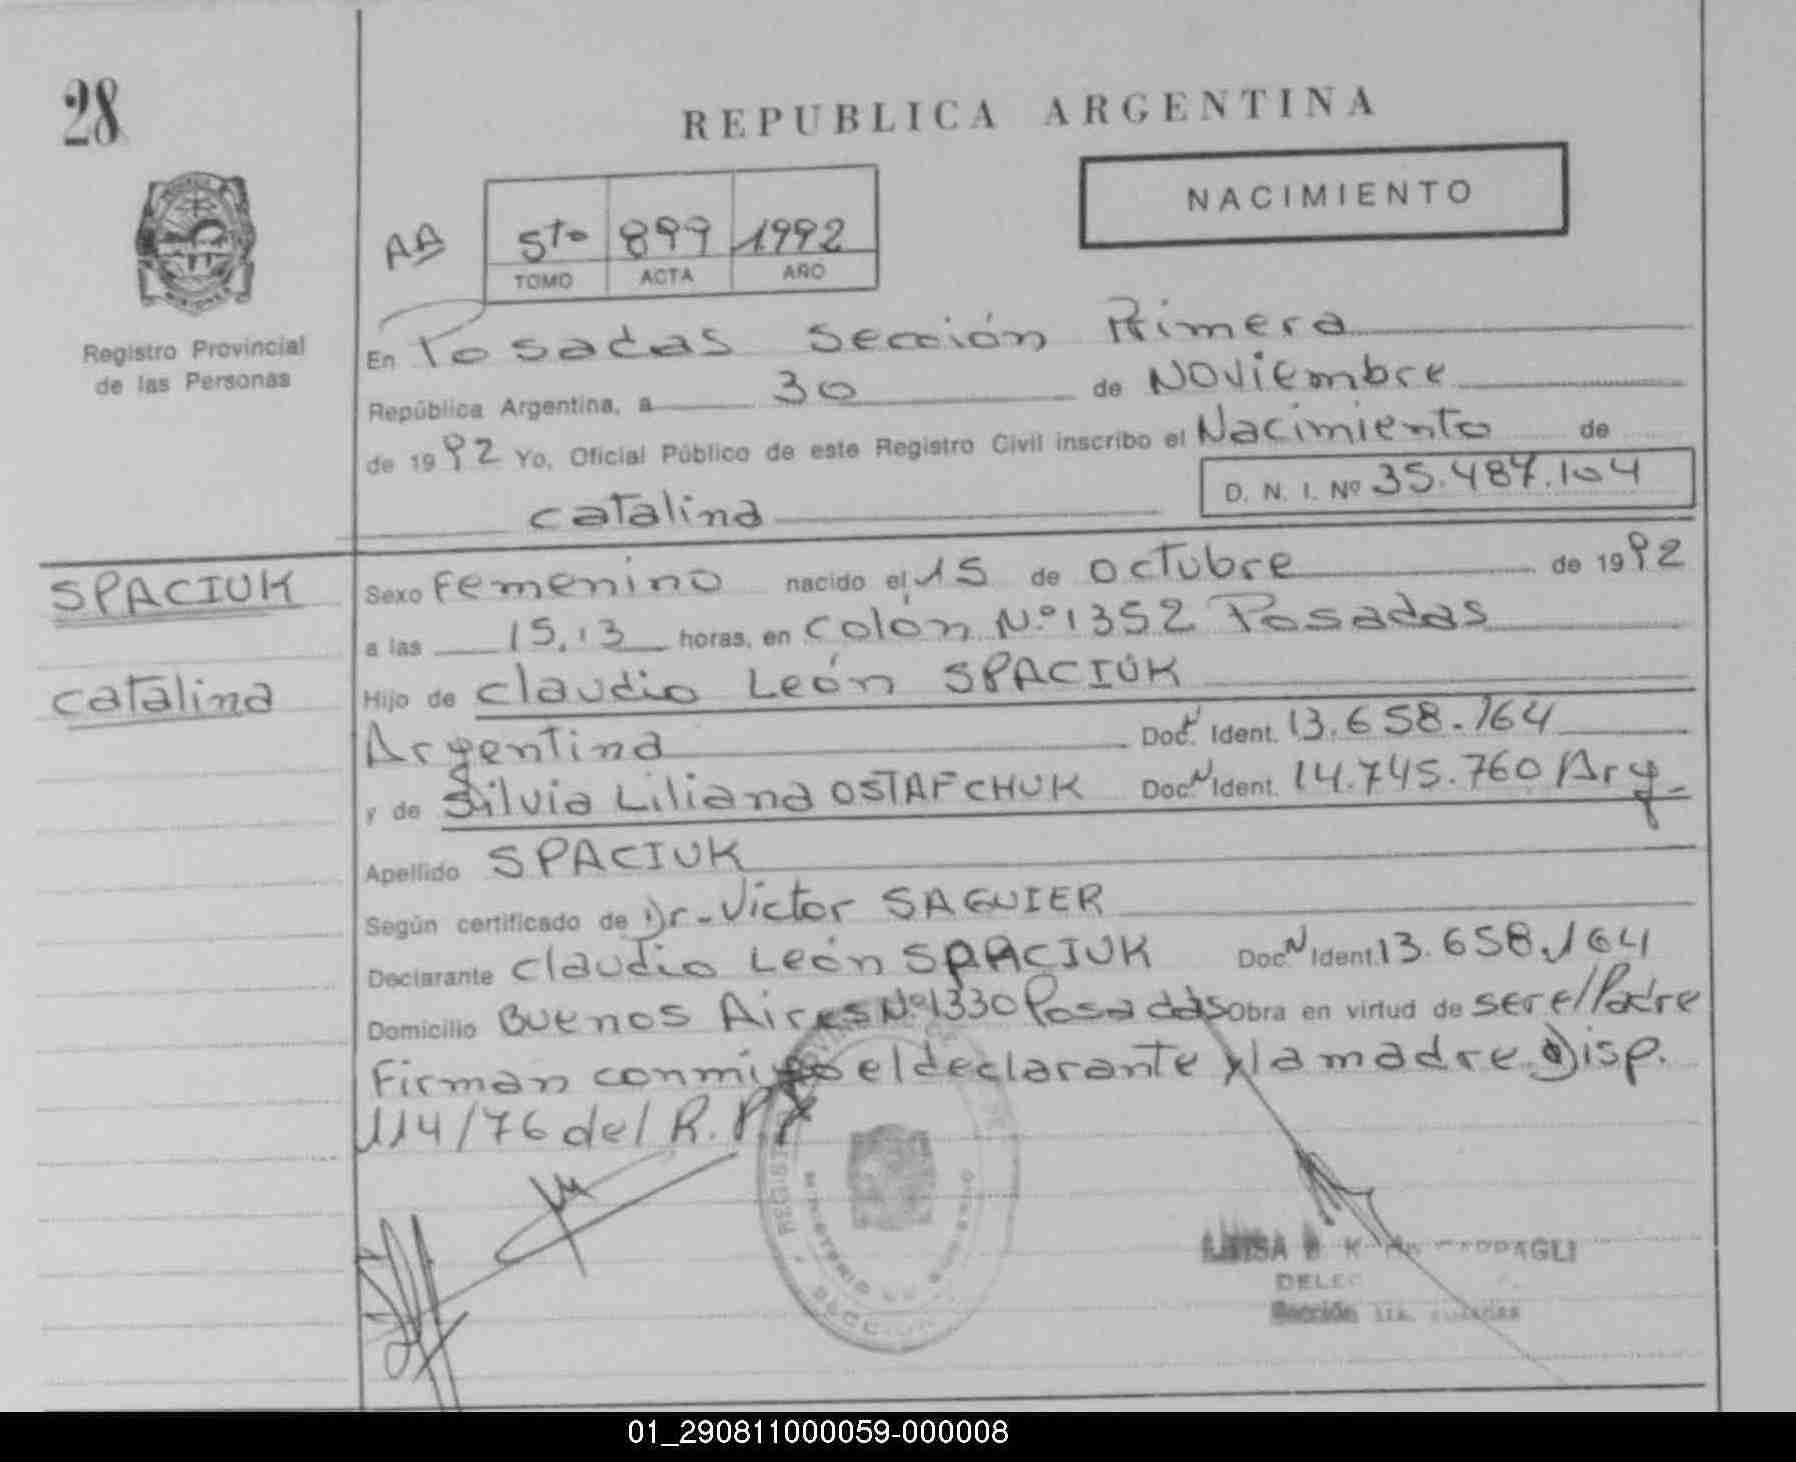 28
REPUBLICA ARGENTINA
NACIMIENTO
AA
5to 899 1992
TOMO ACTA AÑO
Registro Provincial
de las Personas
En Posadas Sección Primera
República Argentina, a 30 de Noviembre
de 1992 Yo, Oficial Público de este Registro Civil inscribo el Nacimiento de
catalina D. N. I. Nº 35.487.104
SPACIUK
catalina
Sexo Femenino nacido el 15 de octubre de 1992
a las 15.13 horas, en colón N.º 1352 Posadas
Hijo de claudio León SPACIUK
Argentina Doc. N Ident. 13.658.164
y de Silvia Liliana OSTAFCHUK Doc. N Ident. 14.745.760 Arg.
Apellido SPACIUK
Según certificado de Dr. Victor SAGUIER
Declarante claudio León SPACIUK Doc. N Ident. 13.658.164
Domicilio Buenos Aires Nº 1330 Posadas Obra en virtud de ser el Padre
Firman conmigo el declarante y la madre. Disp.
114/76 del R.P.
MINISTERIO DE GOBIERNO
SECCION
LUISA
DELEG
Sección 1ra. Posadas
01_290811000059-000008